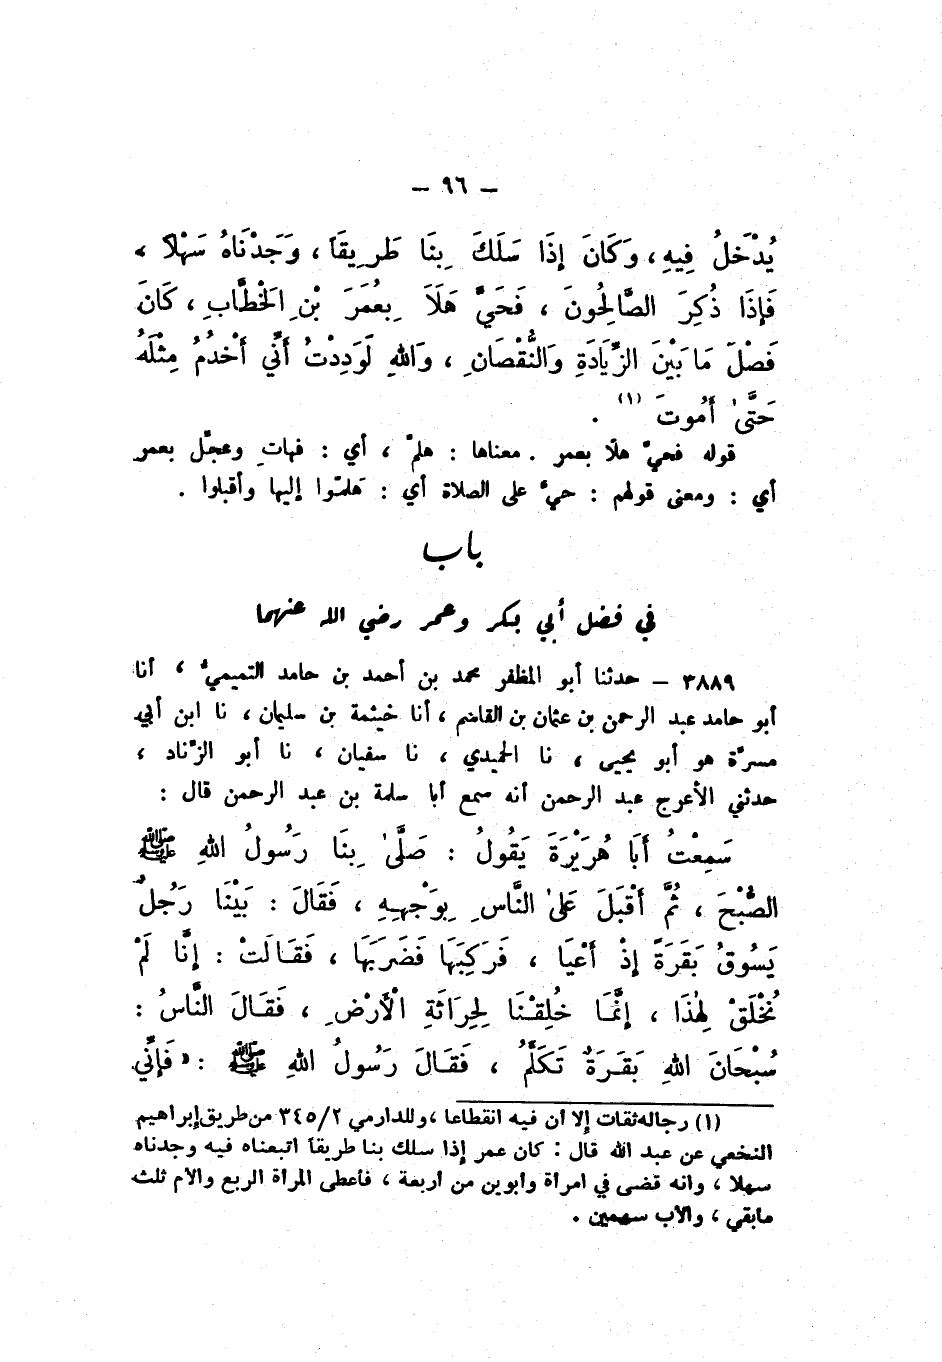 — ٩٦ —
يُدْخَلُ فِيهِ ، وَكَانَ إِذَا سَلَكَ بِنَا طَرِيقَاً ، وَجَدْنَاهُ سَهْلاً ،
فَإِذَا ذُكِرَ الصَّالِحُونَ ، فَحَيَّ هَلَاَ بِعُمَرَ بْنِ الخَطَّابِ ، كَانَ
فَصْلَ مَا بَيْنَ الزِّيَادَةِ وَالنُّقْصَانِ ، وَاللهِ لَوَدِدْتُ أَنِّي أَخْدُمُ مِثْلَهُ
حَتَّىٰ أَمُوتَ (١) .
قوله فحيّ هلًا بعمر . معناها : هلمّ ، أي : فهاتِ وعجّل بعمر
أي : ومعنى قولهم : حيّ على الصلاة أي : هَلمّوا إليها وأقبلوا .
باب
في فضل أبي بكر وعمر رضي الله عنهما
٣٨٨٩ — حدثنا أبو المظفر محمد بن أحمد بن حامد التميميُّ ، أنا
أبو حامد عبد الرحمن بن عثمان بن القاسم ، أنا خيثمة بن سليمان ، نا ابن أبي
مسرّة هو أبو يحيى ، نا الحميدي ، نا سفيان ، نا أبو الزّناد ،
حدثني الأعرج عبد الرحمن أنه سمع أبا سلمة بن عبد الرحمن قال :
سَمِعْتُ أَبَا هُرَيْرَةَ يَقُولُ : صَلَّىٰ بِنَا رَسُولُ اللهِ ﷺ
الصُّبْحَ ، ثُمَّ أَقْبَلَ عَلىٰ النَّاسِ بِوَجْهِهِ ، فَقَالَ : بَيْنَا رَجُلٌ
يَسُوقُ بَقَرَةً إِذْ أَعْيَا ، فَرَكِبَهَا فَضَرَبَهَا ، فَقَالَتْ : إِنَّا لَمْ
نُخْلَقْ لِهٰذَا ، إِنَّمَا خُلِقْنَا لِحِرَاثَةِ الْأَرْضِ ، فَقَالَ النَّاسُ :
سُبْحَانَ اللهِ بَقَرَةٌ تَكَلَّمُ ، فَقَالَ رَسُولُ اللهِ ﷺ : « فَإِنِّي
(١) رجاله ثقات إلا أن فيه انقطاعا ، وللدارمي ٣٤٥/٢ من طريق إبراهيم
النخعي عن عبد الله قال : كان عمر إذا سلك بنا طريقاً اتبعناه فيه وجدناه
سهلا ، وانه قضى في امرأة وأبوين من أربعة ، فأعطى المرأة الربع والأم ثلث
مابقي ، والأب سهمين .